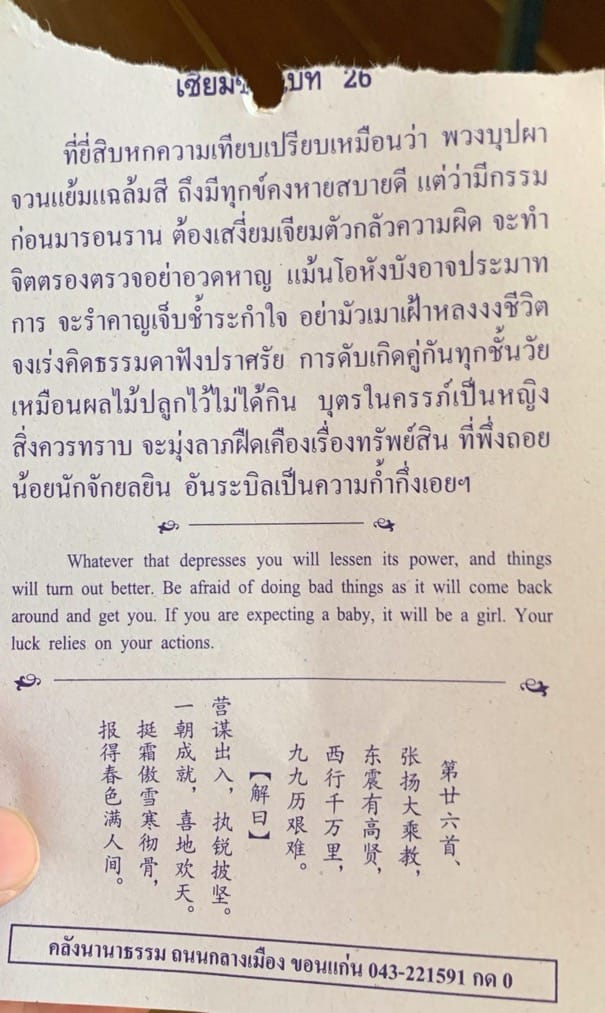 26
ที่ยี่สิบหกความเทียบเปรียบเหมือนว่า พวงบุปผา
จวนแย้มแฉล้มสี ถึงมีทุกข์คงหายสบายดี แต่ว่ามีกรรม
ก่อนมารอนราน ต้องเสงี่ยมเจียมตัวกลัวความผิด จะทำ
จิตตรองตรวจอย่าอวดหาญ แม้นโอหังบังอาจประมาท
การ จะรำคาญเจ็บช้ำระกำใจ อย่ามัวเมาเฝ้าหลงงงชีวิต
จงเร่งคิดธรรมดาฟังปราศรัย การดับเกิดคู่กันทุกชั้นวัย
เหมือนผลไม้ปลูกไว้ไม่ได้กิน บุตรในครรภ์เป็นหญิง
สิ่งควรทราบ จะมุ่งลาภฝืดเคืองเรื่องทรัพย์สิน ที่พึ่งถอย
น้อยนักจักยลยิน อันระบิลเป็นความก้ำกึ่งเอยฯ
Whatever that depresses you will lessen its power, and things
will turn out better. Be afraid of doing bad things as it will come back
around and get you. If you are expecting a baby, it will be a girl. Your
luck relies on your actions.
第廿六首、
张扬大乘教，
东震有高贤，
西行千万里，
九九历艰难。
【解曰】
营谋出入，执锐披坚。
一朝成就，喜地欢天。
挺霜傲雪寒彻骨，
报得春色满人间。
คลังนานาธรรม ถนนกลางเมือง ขอนแก่น 043-221591 กด 0